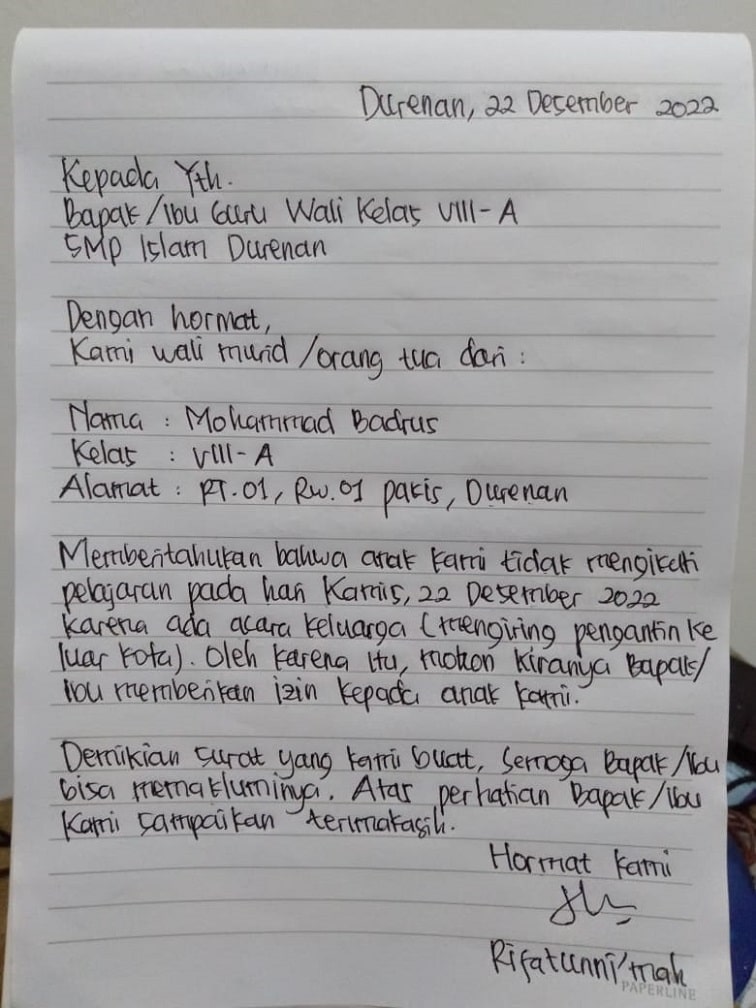 Durenan, 22 Desember 2022
Kepada Yth.
Bapak/Ibu Guru Wali Kelas VIII-A
SMP Islam Durenan
Dengan hormat,
Kami wali murid/orang tua dari :
Nama : Mohammad Badrus
Kelas : VIII-A
Alamat : RT.01, RW.01 pakis, Durenan
Memberitahukan bahwa anak kami tidak mengikuti
pelajaran pada hari Kamis, 22 Desember 2022
karena ada acara keluarga (mengiring pengantin ke
luar kota). Oleh karena itu, mohon kiranya Bapak/
Ibu memberikan izin kepada anak kami.
Demikian surat yang kami buat, semoga Bapak/Ibu
bisa memakluminya. Atas perhatian Bapak/Ibu
kami sampaikan terimakasih.
Hormat kami
Rifatunni'mah
PAPERLINE